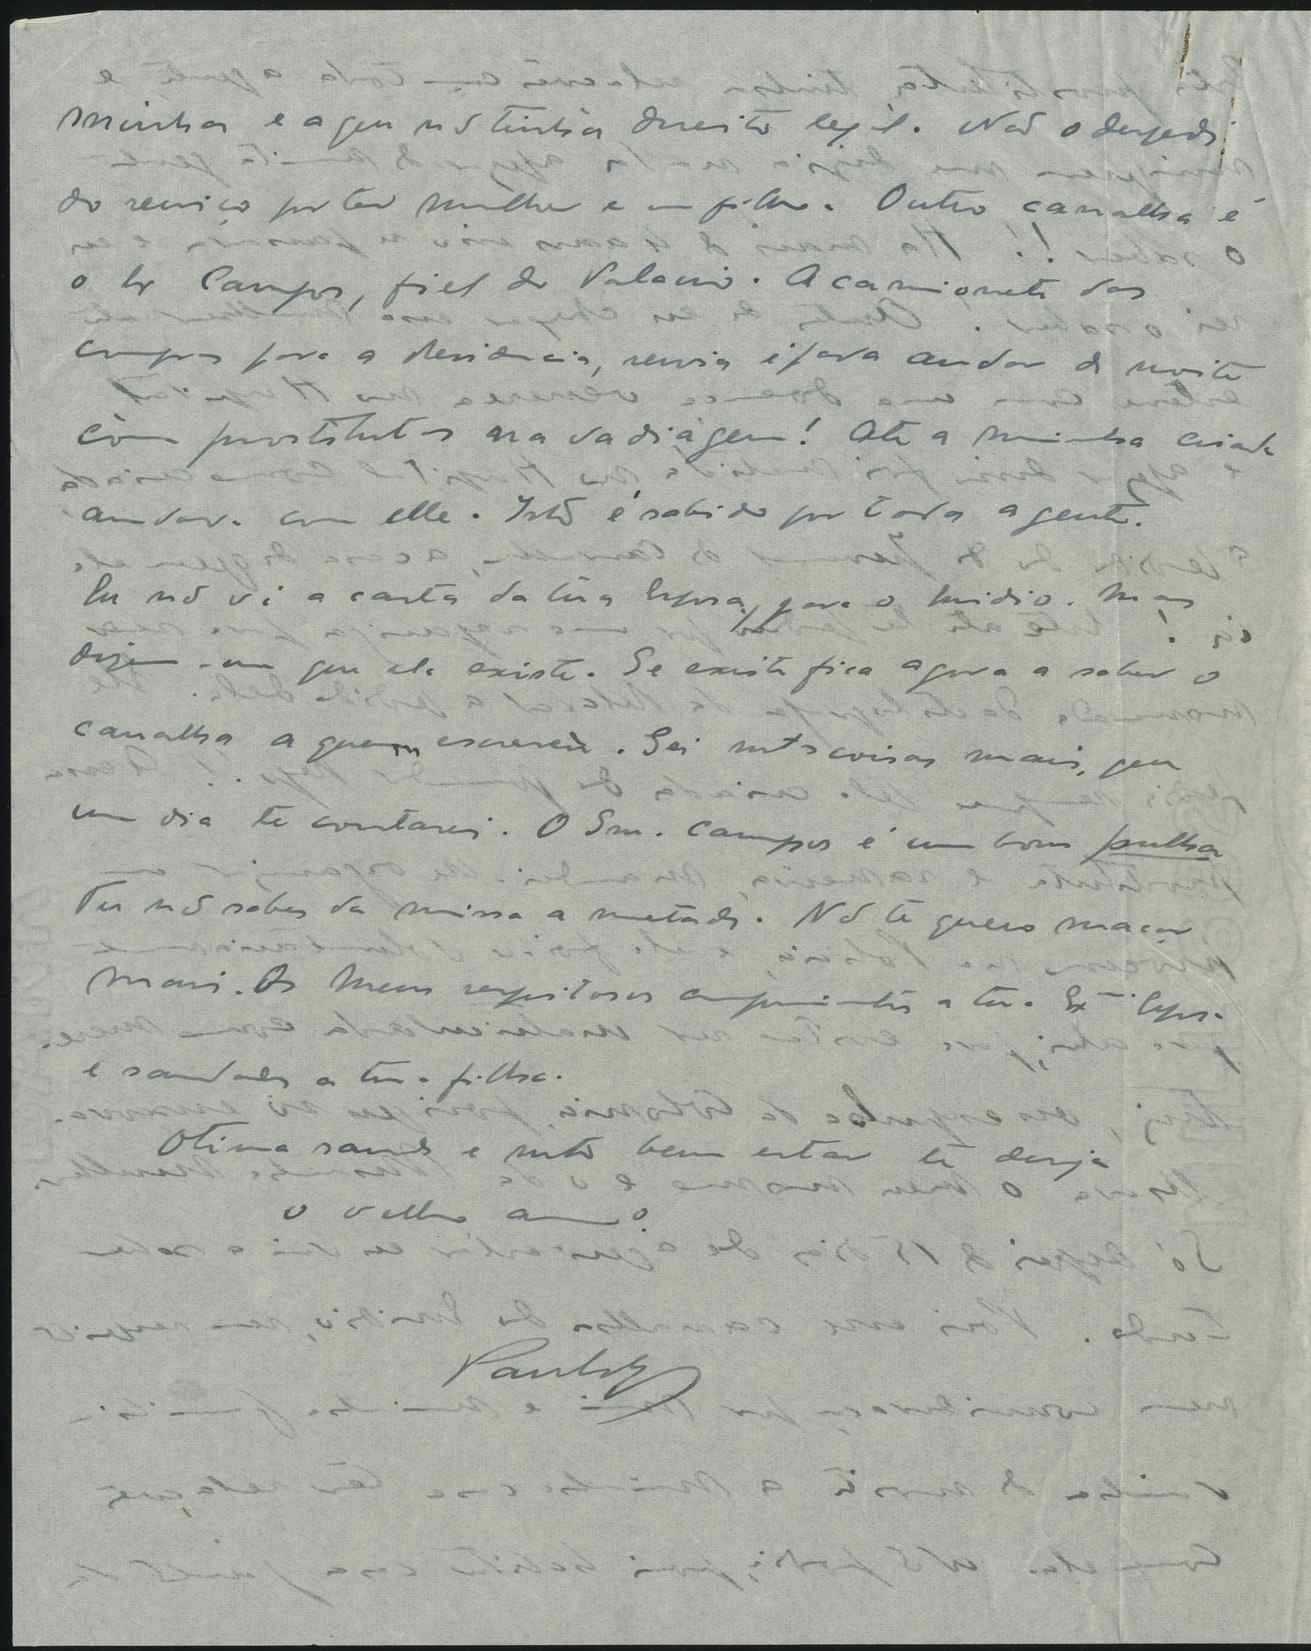 minha e a que nõ tinha direito legal. Nõo o despedi
do serviço por ter mulher e um filho. Outro canalha é
o Sr Campos, fiel do Palacio. A camioneta das
compras para a Residencia, servia é para andar de noite
com prostitutas na vadiágem! Até a minha criada
andava com elle. Isto é sabido por toda a gente.
Eu nõ vi a carta da tua Esposa, para o Emidio. Mas
dizem-me que ela existe. Se existe fica agora a saber o
canalha a quem escreveu. Sei mtas coisas mais, que
um dia te contarei. O Snr. Campos é um bom pulha
Tu nõ sabes da missa a metade. Nõ te quero maçar
mais. Os meus respeitosos cumprimentos a tua Exma Esposa
e saudades a tua filha.
Otima saude e mto bem estar te deseja
o velho amo